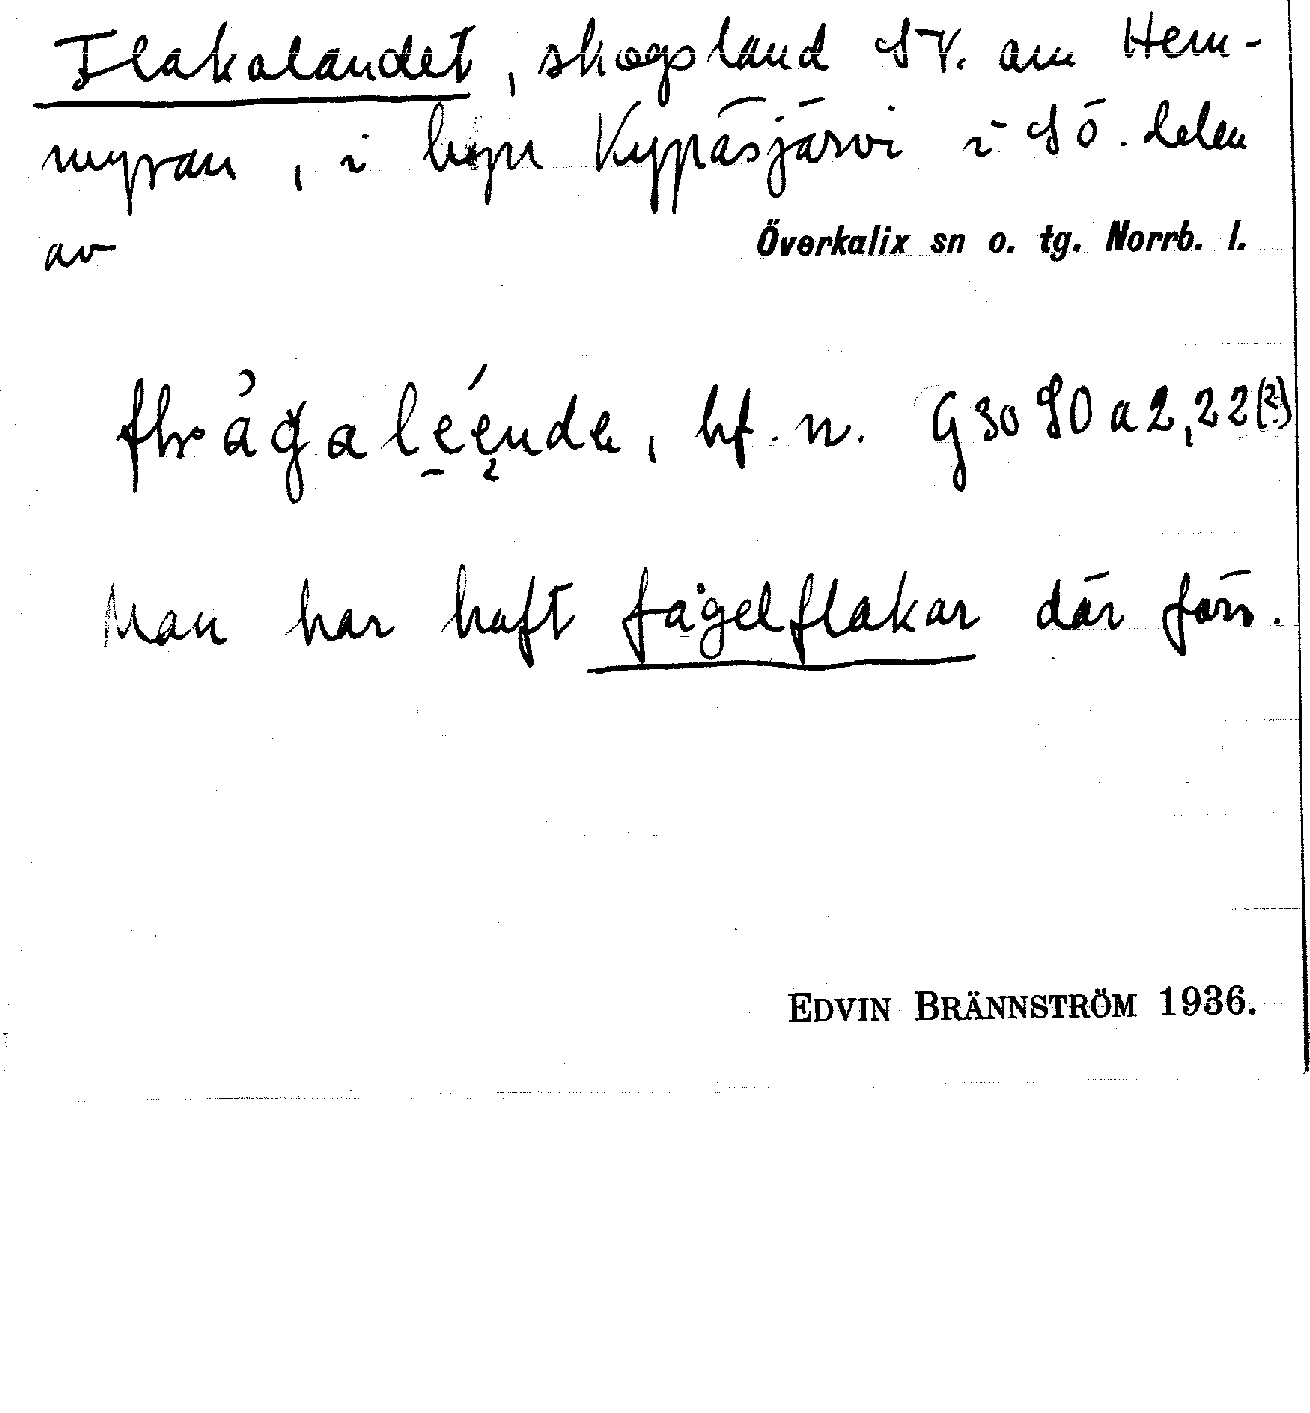 Flakalandet, skogsland SV. om Hem-
myran, i byn Kypasjärvi i SÖ. delen
av Överkalix sn o. tg. Norrb. l.
bf. n. G 30 SO a 2, 22 (?)
Man har haft fågelflakar där förr.
EDVIN BRÄNNSTRÖM 1936.